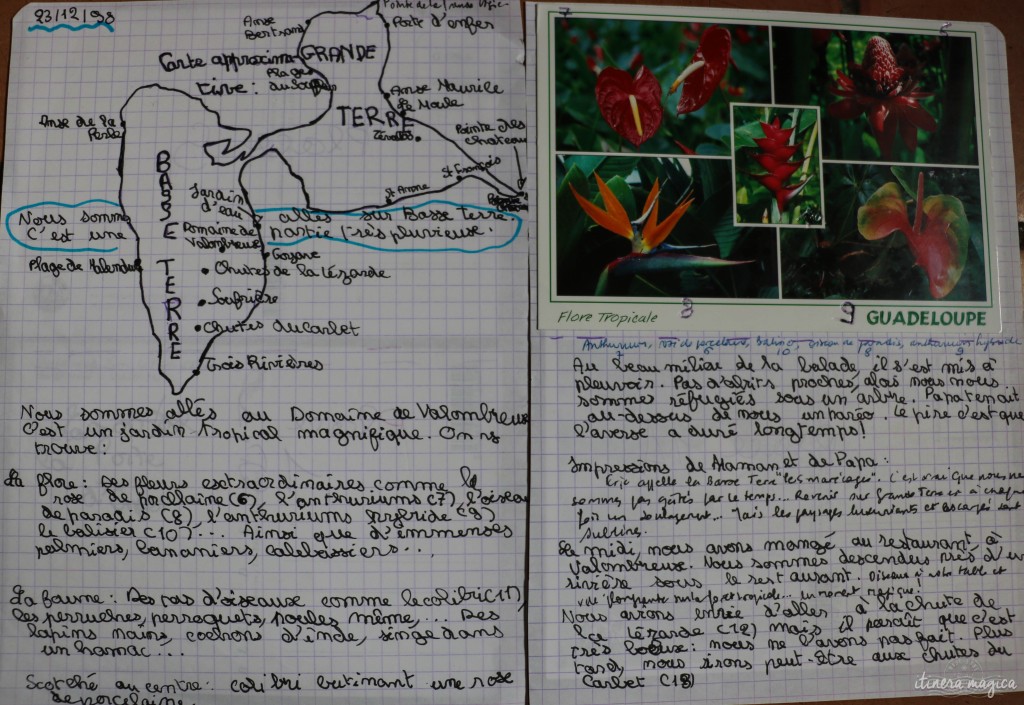 23/12/98
Carte approxima-
tive :
Anse
Bertrand
GRANDE
TERRE
Porte d'enfer
Plage
du Souffleur
Anse Maurice
Le Moule
Zévallos
Pointe des
chateaux
St François
St Anne
Anse de la
Perle
BASSE TERRE
Jardin
d'eau
Domaine de
Valombreuse
Goyave
Plage de Malendure
Chutes de la Lézarde
Soufrière
Chutes du Carbet
Trois Rivières
Nous sommes allés sur Basse Terre
C'est une partie très pluvieuse.
Nous sommes allés au Domaine de Valombreuse
c'est un jardin tropical magnifique. On y
trouve :
La flore : Des fleurs extraordinaires comme la
rose de porcelaine (6), l'anthuriums (7), l'oiseau
de paradis (8), l'anthuriums hybride (9)
le balisier (10) ... Ainsi que d'immenses
palmiers, bananiers, calebassiers ...
La faune : Des tas d'oiseaux comme le colibri (11),
les perruches, perroquets, poules même, ... Des
lapins nains, cochons d'inde, singe dans
un hamac ...
Scotché au centre : colibri butinant une rose
de porcelaine.
7
5
8
9
Flore Tropicale
GUADELOUPE
Anthuriums, rose de porcelaine, balisier, oiseau de paradis, anthurium hybride
7 6 10 8 9
Au beau milieu de la balade, il s'est mis à
pleuvoir. Pas d'abris proches, alors nous nous
sommes réfugiés sous un arbre. Papa tenait
au-dessous de nous un paréo. Le pire c'est que
l'averse a duré longtemps !
Impressions de Maman et de Papa :
Eric appelle la Basse Terre "les marécages". C'est vrai que nous ne
sommes pas gâtés par le temps... Revenir sur Grande Terre est à chaque
fois un soulagement... Mais les paysages luxuriants et escarpés sont
sublimes.
Le midi, nous avons mangé au restaurant, à
Valombreuse. Nous sommes descendus près d'une
rivière sous le restaurant. Oiseaux à notre table et
vue plongeante sur la forêt tropicale... un moment magique !
Nous avions envie d'aller à la chute de
la Lézarde (12) mais il paraît que c'est
très boueux : nous ne l'avons pas fait. Plus
tard, nous irons peut-être aux chutes du
Carbet (18)
itinera magica